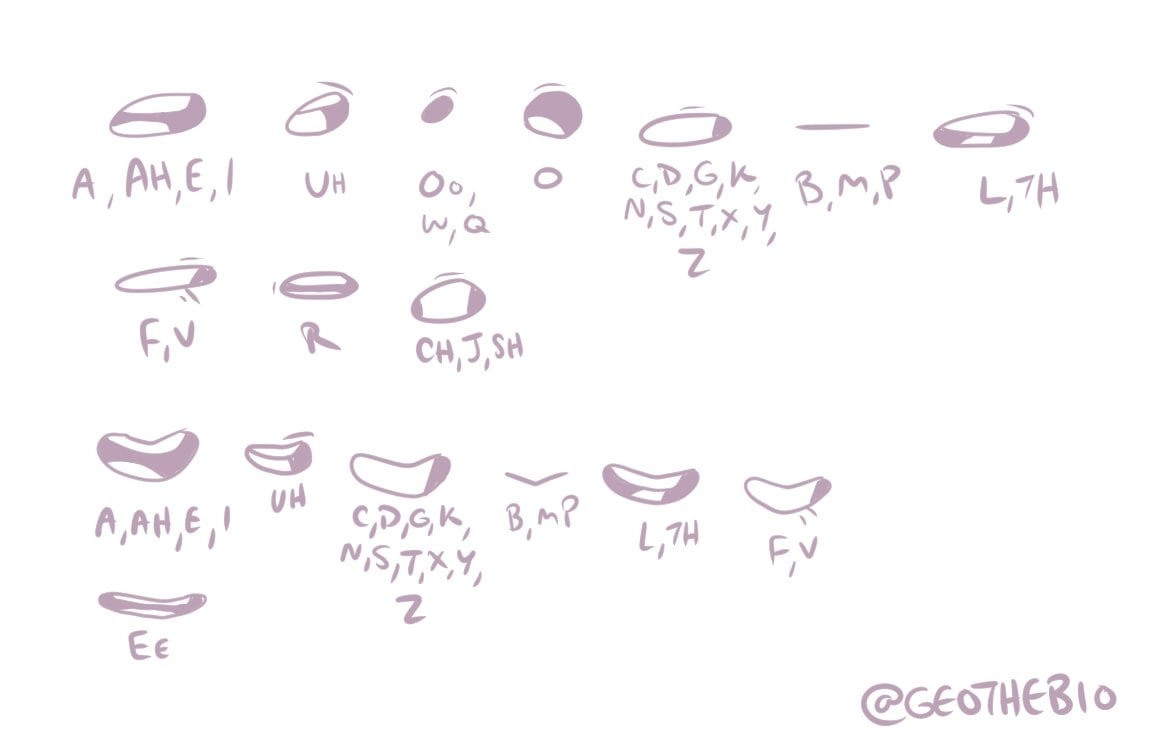 A, AH, E, I
UH
Oo,
W, Q
O
C, D, G, K,
N, S, T, X, Y,
Z
B, M, P
L, TH
F, V
R
CH, J, SH
A, AH, E, I
UH
C, D, G, K,
N, S, T, X, Y,
Z
B, M P
L, TH
F, V
Ee
@GEOTHEBIO